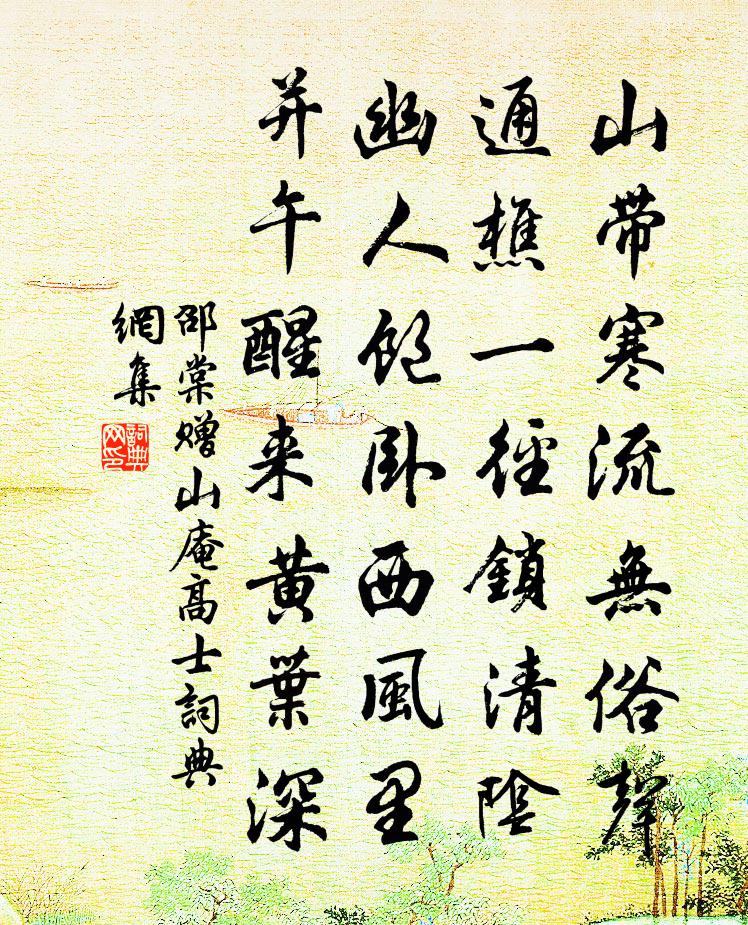 山帶寒流無俗聲
通樵一徑鎖清陰
幽人飽卧西風里
并午醒来黃葉深
邵棠贈山庵高士詞典
網集
詞典
网印